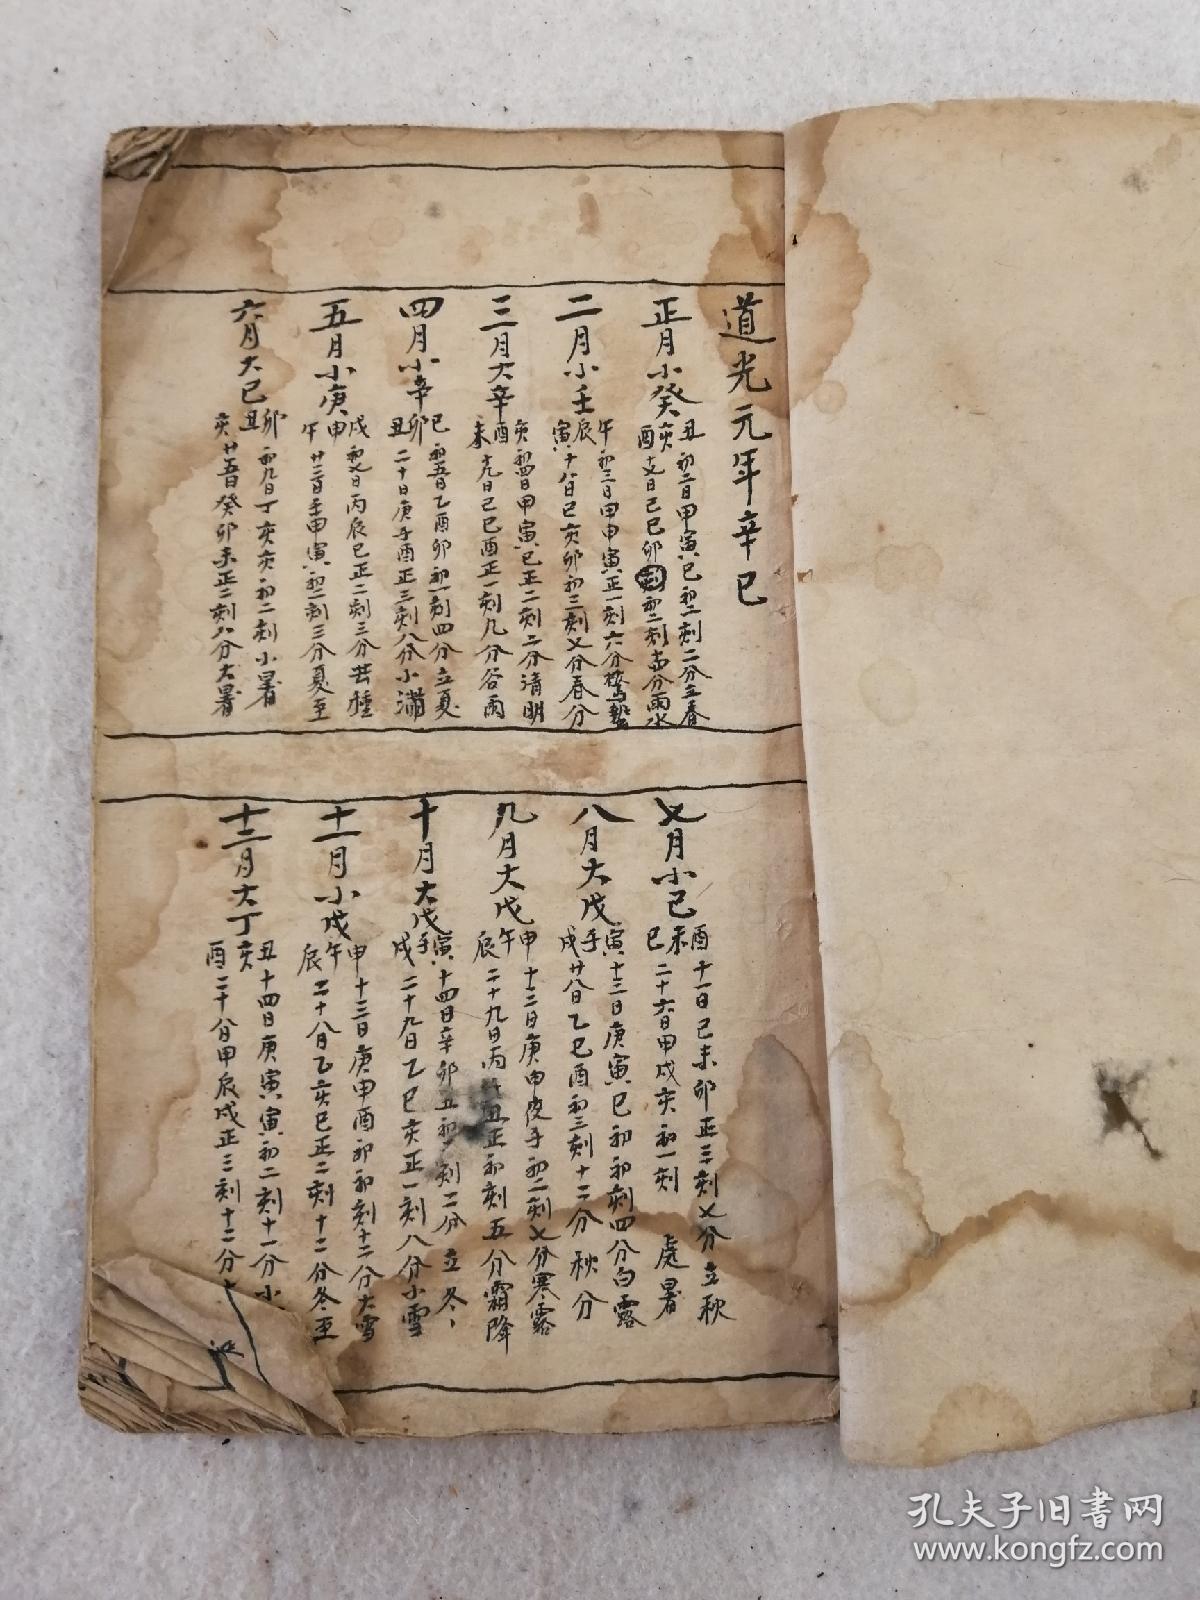 道光元年辛巳
正月小癸亥
丑初二日甲寅巳初二刻二分立春
酉十七日己巳卯初二刻十四分雨水
二月小壬辰
午初三日甲申寅正一刻六分驚蟄
寅十八日己亥卯初三刻七分春分
三月大辛酉
亥初四日甲寅巳正二刻二分清明
未十九日己巳酉正一刻九分谷雨
四月小辛卯
巳初五日乙酉卯初一刻四分立夏
丑二十日庚子酉正三刻八分小滿
五月小庚申
戌初七日丙辰巳正二刻三分芸種
午廿三日壬申寅初二刻三分夏至
六月大己丑
卯初九日丁亥亥初二刻小暑
亥廿五日癸卯未正二刻八分大暑
七月小己未
酉十一日己未卯正三刻七分立秋
巳二十六日甲戌亥初一刻 處暑
八月大戊子
寅十三日庚寅巳初初刻四分白露
戌廿八日乙巳酉初三刻十二分秋分
九月大戊午
申十三日庚申夜子初二刻七分寒露
辰二十九日丙丑正初刻五分霜降
十月大戊子
寅十四日辛卯丑初刻二分立冬
戌二十九日乙巳亥正一刻八分小雪
十一月小戊午
申十三日庚申酉初初刻十二分大雪
辰二十八日乙亥巳正二刻十二分冬至
十二月大丁亥
丑十四日庚寅寅初二刻十一分小
酉二十八日甲辰戌正三刻十二分
孔夫子旧书网
www.kongfz.com